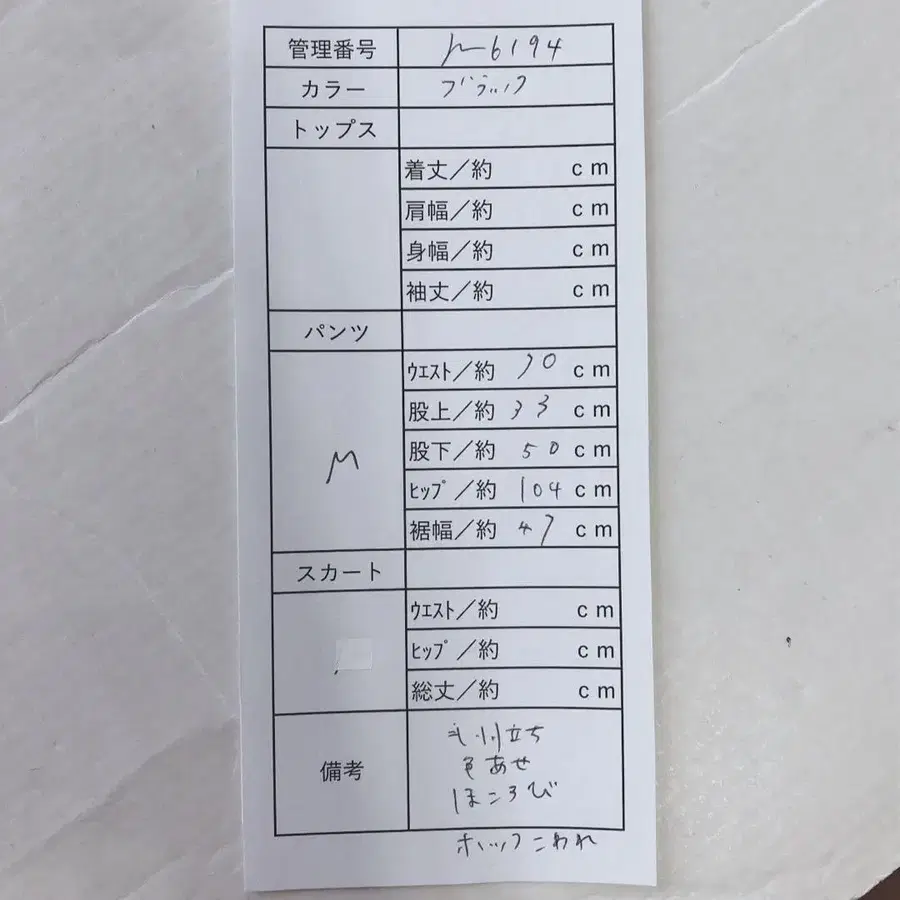 管理番号 6194
カラー ブラック
トップス
着丈／約 cm
肩幅／約 cm
身幅／約 cm
袖丈／約 cm
パンツ
ｳｴｽﾄ／約 70 cm
股上／約 33 cm
M 股下／約 50 cm
ﾋｯﾌﾟ／約 104 cm
裾幅／約 47 cm
スカート
ｳｴｽﾄ／約 cm
ﾋｯﾌﾟ／約 cm
総丈／約 cm
備考
毛羽立ち
色あせ
ほころび
ホックこわれ